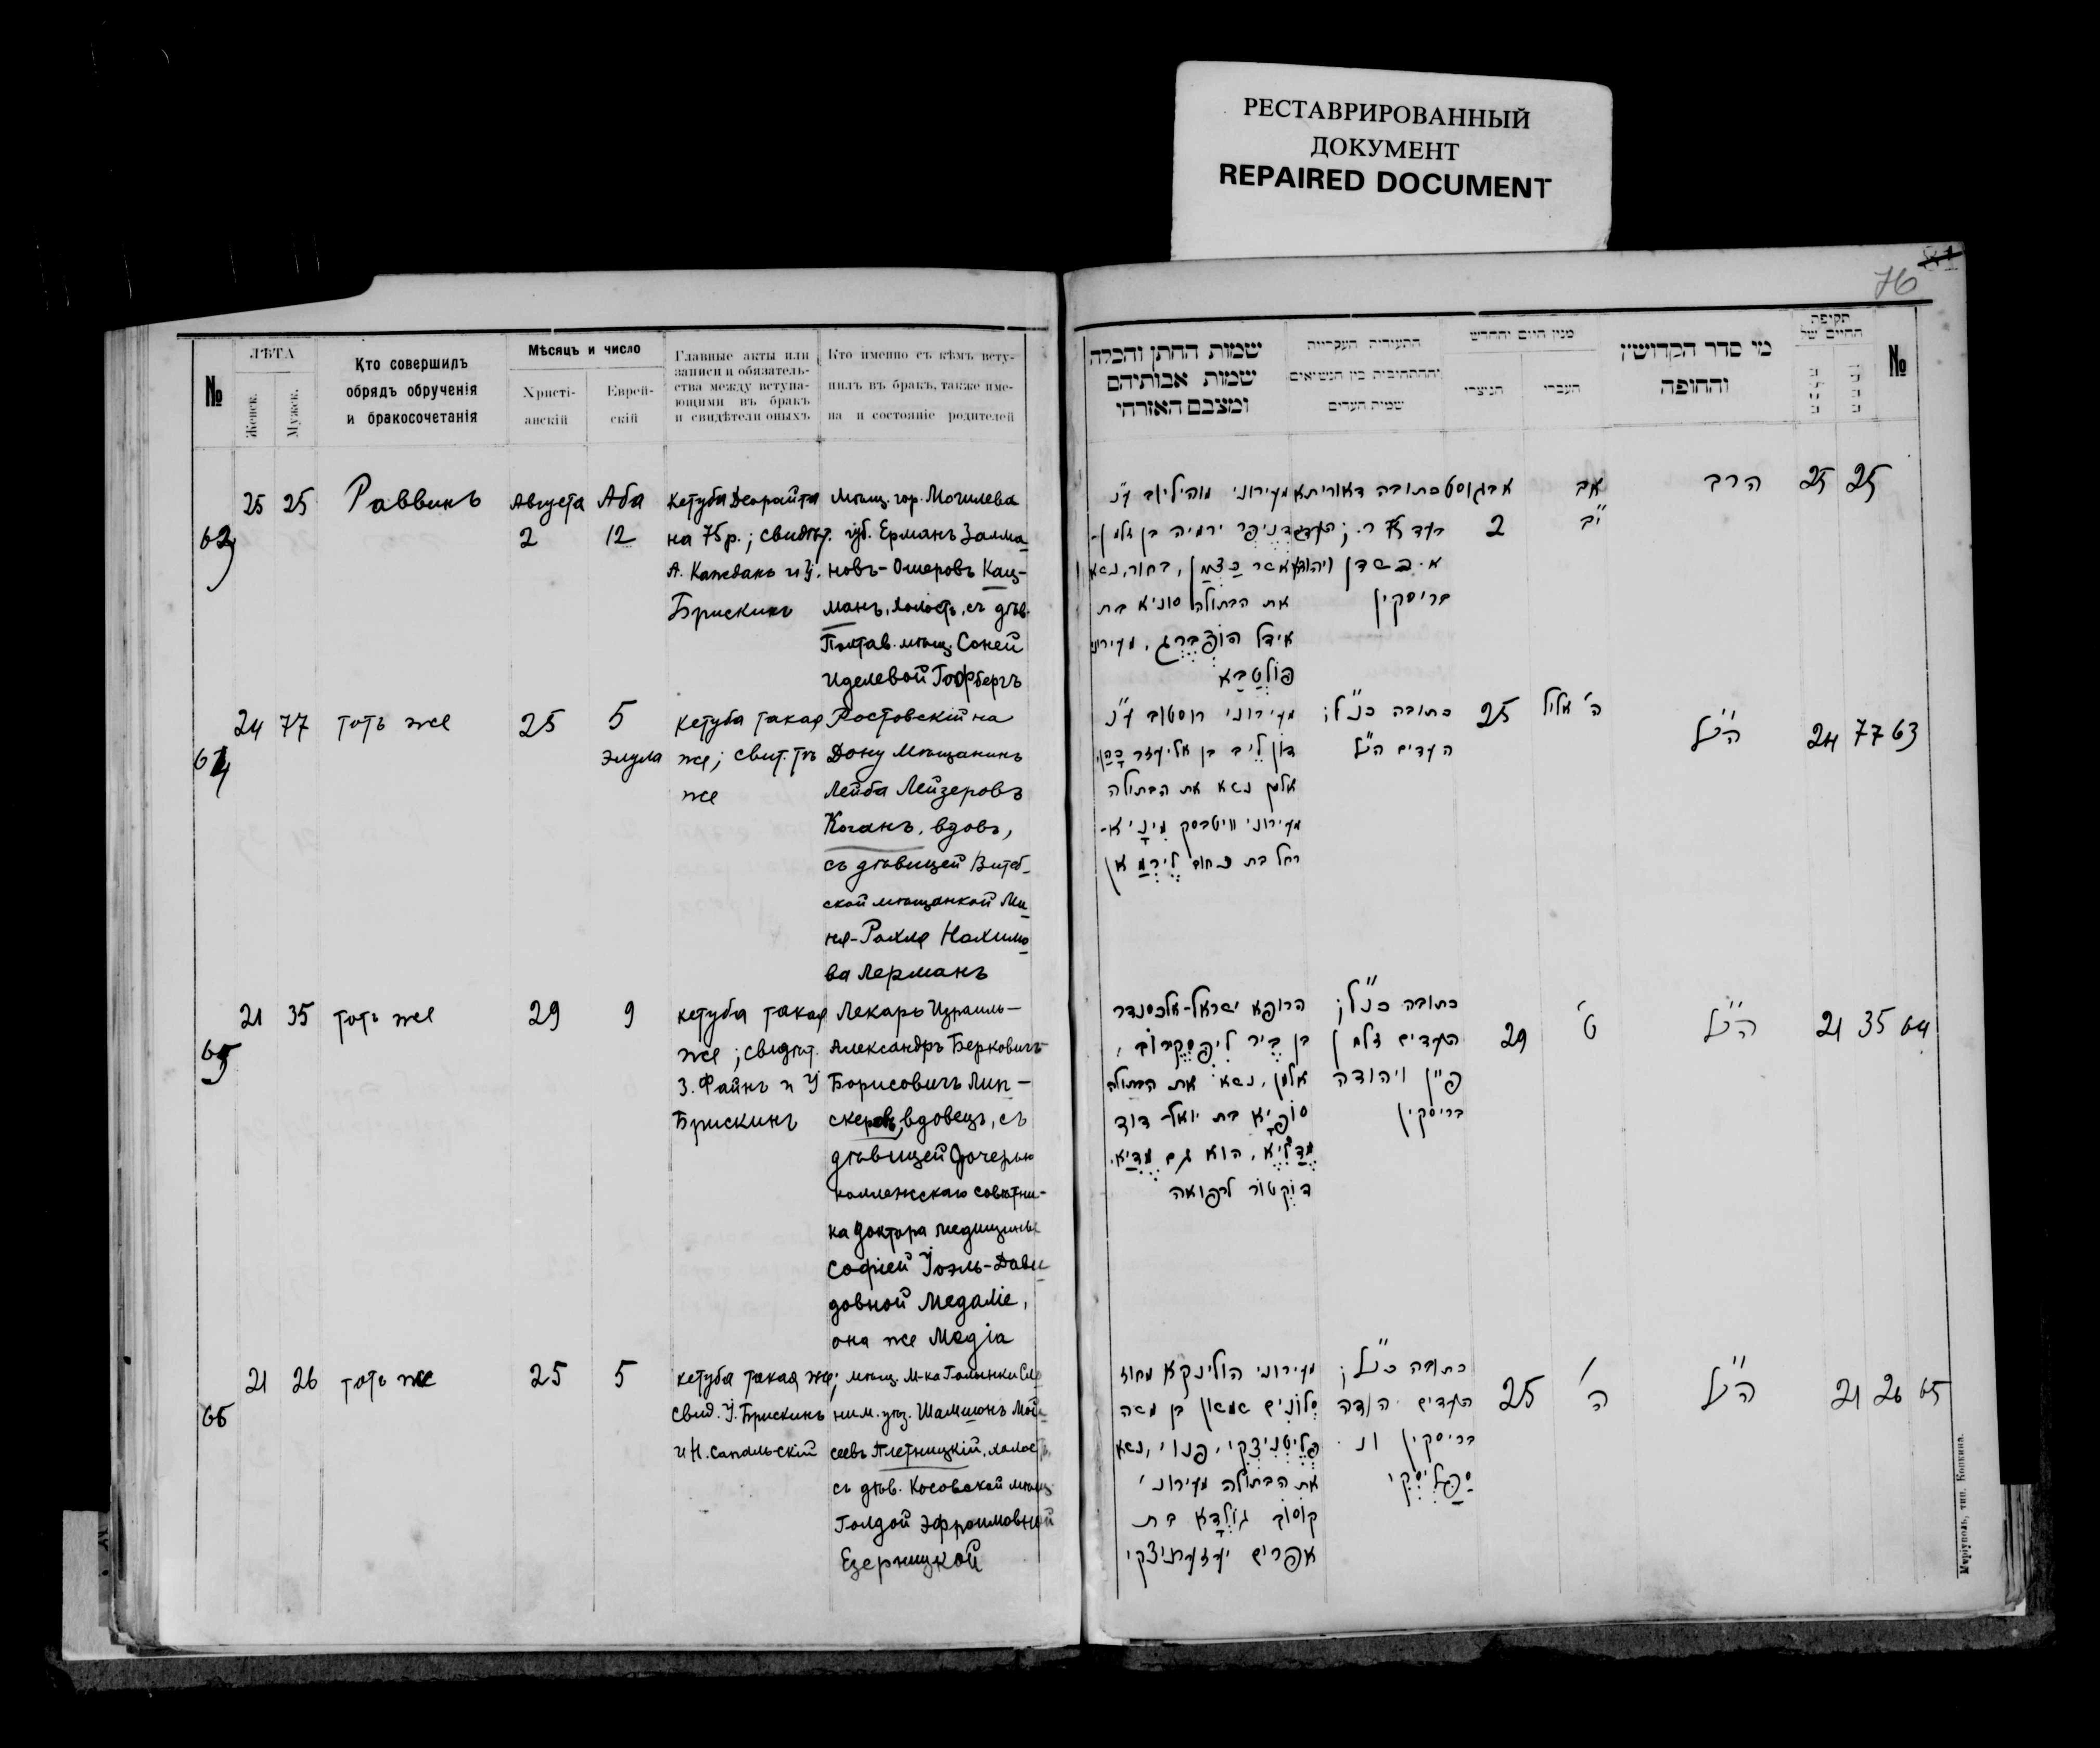 РЕСТАВРИРОВАННЫЙ
ДОКУМЕНТ
REPAIRED DOCUMENT
№
ЛѢТА
Женск.
Мужск.
Кто совершилъ
обрядъ обрученія
и бракосочетанія
Мѣсяцъ и число
Христі-
анскій
Еврей-
скій
Главные акты или
записи и обязатель-
ства между вступа-
ющими въ бракъ
и свидѣтели оныхъ
Кто именно съ кѣмъ всту-
пилъ въ бракъ, также име-
на и состояніе родителей
25 25 Раввинъ
Августа
2
Аба
12
кетуба Деорайта
на 75 р.; свидѣт.
А. Каждань и У.
Брискинъ
мѣщ. гор. Могилева
губ. Ерманъ Залма
новъ-Ошеровъ Кац-
манъ, холостъ, съ дѣв.
Полтав. мѣщ. Соней
Иделевой Гофбергъ
24 77 тотъ же 25
5
элула
кетуба такая
же; свит. тѣ
же
Ростовскій на
Дону мѣщанинъ
Лейба Лейзеровъ
Коганъ, вдовъ,
съ дѣвицей Витеб-
ской мѣщанкой Ми
ня-Рахля Нахимо
ва Лерманъ
65
21 35 тотъ же 29 9
кетуба такая
же; свидѣт.
З. Файнъ и У
Брискинъ
Лекарь Израиль-
Александръ Берковичъ-
Борисовичъ Лип-
скеровъ, вдовецъ, съ
дѣвицей дочерью
коллежскаго совѣтни-
ка доктора медицины
Софіей Іоэль-Дави
довной Медаліе,
она же Медіа
66
21 26 тотъ же 25 5
кетуба такая же;
свид. У. Брискинъ
и Н. Сапальскій
мѣщ. м-ка Голынки Сло
ним. уѣз. Шамшонъ Мой
сеевъ Плетницкій, холостъ,
съ дѣв. Косовской мѣщ
Голдой Эфроимовной
Езерницкой
76
81
שמות החתן והכלה
שמות אבותיהם
ומצבם האזרחי
התעודות העקריות
וההתחיבות בין הנשואים
שמות העדים
מנין היום והחדש
הנוצרי
העברי
מי סדר הקדושין
והחופה
תקופת
החיים של
№
מעירוני מוהיליוב ע"נ
דניפר ירמיה בן זלמן-
אשר כצמן, בחור, נשא
את הבתולה סוניא בת
אידל הופברג, מעירוני
פולטבא
כתובה דאורייתא
בעד 75 ר.; העדים
בריסקין
אבגוסט
2
אב
י"ב
הרב
25 25
מעירוני רוסטוב ע"נ
דון ליב בן אליעזר כהן,
אלמן נשא את הבתולה
מעירוני וויטבסק מיניא-
רחל בת נחום לירמאן
כתובה כנ"ל;
העדים הנ"ל
25
ה' אלול
הנ"ל
24 77 63
הרופא ישראל-אלכסנדר
בן בֶּר ליפסקרוב,
אלמן, נשא את הבתולה
סופיא בת יואל-דוד
מדליא, הוא גם מדיא.
דוקטור לרפואה
כתובה כנ"ל;
העדים זלמן
פיין ויהודה
בריסקין
29
ט'
הנ"ל
21 35 64
מעירוני הולינקא מחוז
סלונים שמשון בן משה
פליטניצקי, פנוי, נשא
את הבתולה מעירוני
קוסוב גולדא בת
אפרים יעזערניצקי
כתובה כנ"ל;
העדים יהודה
בריסקין ונ.
ספלסקי
25
ה'
הנ"ל
21 26 65
Маріуполь, тип. Копкина.